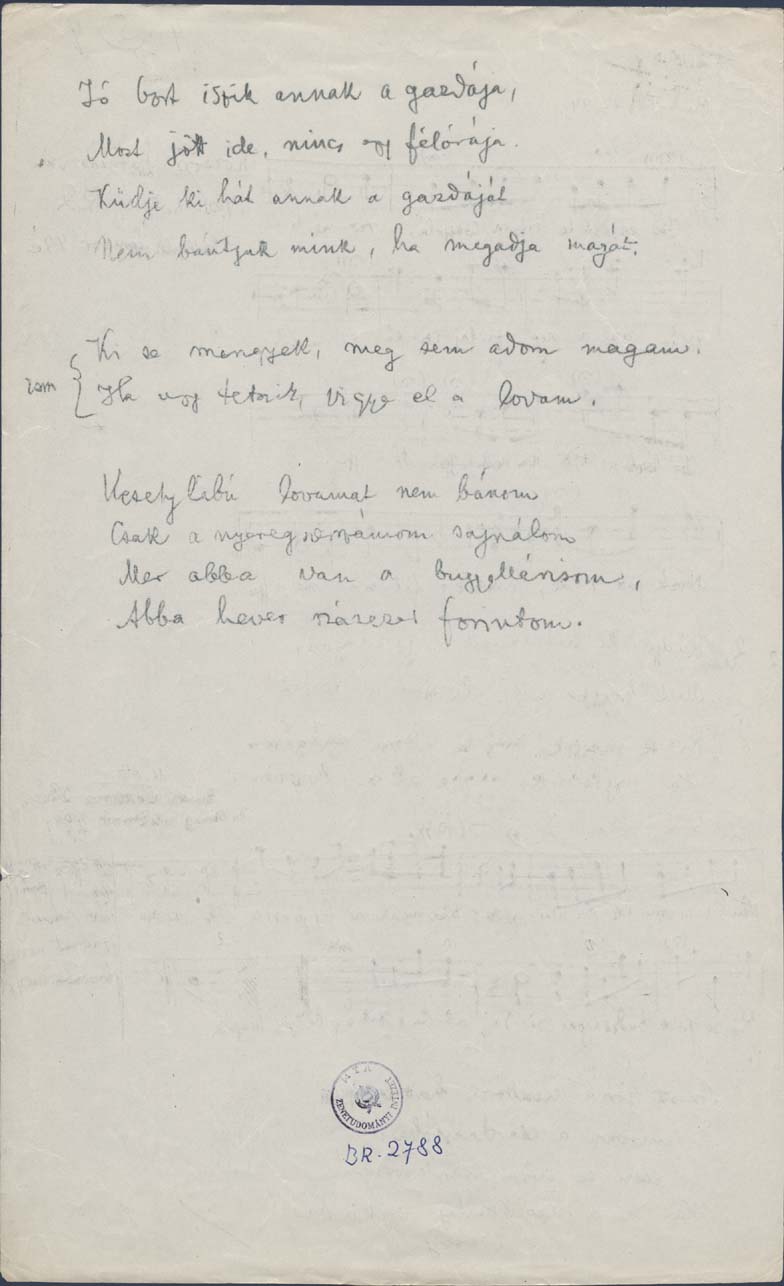 Jó bort iszik annak a gazdája,
Most jött ide, nincs egy félórája.
Küdje ki hát annak a gazdáját
Nem bántjuk mink, ha megadja magát.
Ki se mengyek, meg sem adom magam.
Ha úgy tetszik, vigye el a lovam.
Kesely lábú lovamat nem bánom
Csak a nyeregszerszámom sajnálom
Mer abba van a bugyellárisom,
Abba hever százezer forintom.
MTA
ZENETUDOMÁNYI INTÉZET
BR. 2788